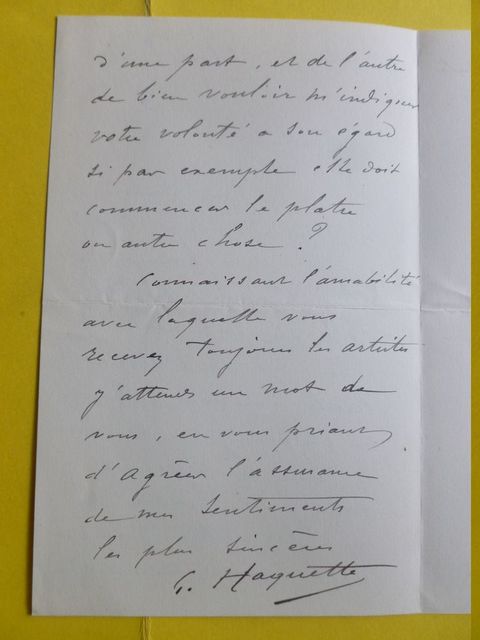 d'une part, et de l'autre
de bien vouloir m'indiquer
votre volonté a son égard
si par exemple elle doit
commencer le platre
ou autre chose ?
Connaissant l'amabilité
avec laquelle vous
recevez toujours les artistes
j'attends un mot de
vous, en vous priant,
d'agréer l'assurance
de mes sentiments
les plus sincères
G. Haquette